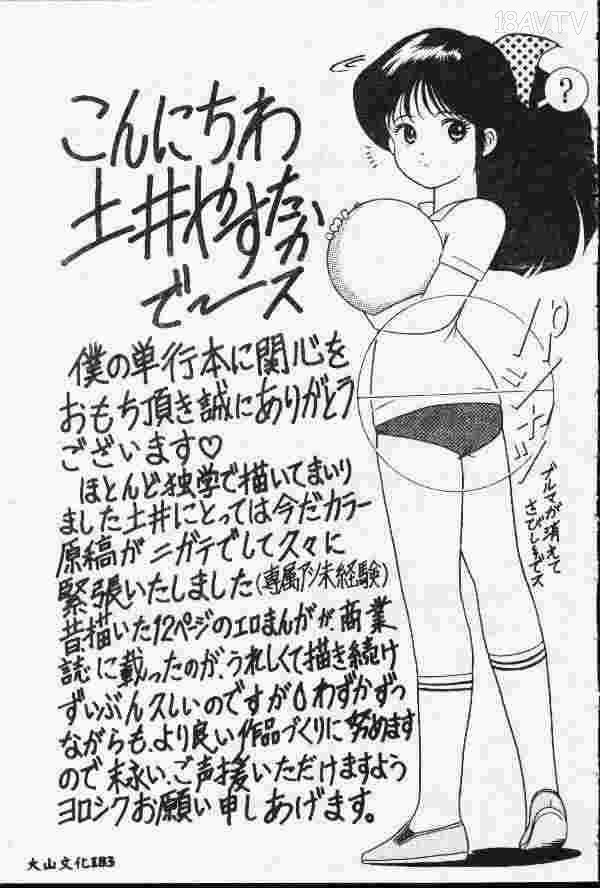 18AVTV
こんにちわ
土井やすたカ
で〜ス
僕の単行本に関心を
おもち頂き誠にありがとう
ございます♡
ほとんど独学で描いてまいり
ました土井にとっては今だカラー
原稿がニガテでして久々に
緊張いたしました(専属アシ未経験)
昔描いた12ページのエロまんがが、商業
誌に載ったのが、うれしくて描き続け
ずいぶん久しいのですが わずかずつ
ながらも、より良い作品づくりに努めます
ので末永い、ご声援いただけますよう
ヨロシクお願い申しあげます。
?
ブルマが消えて
さびしいでス
大山文化183